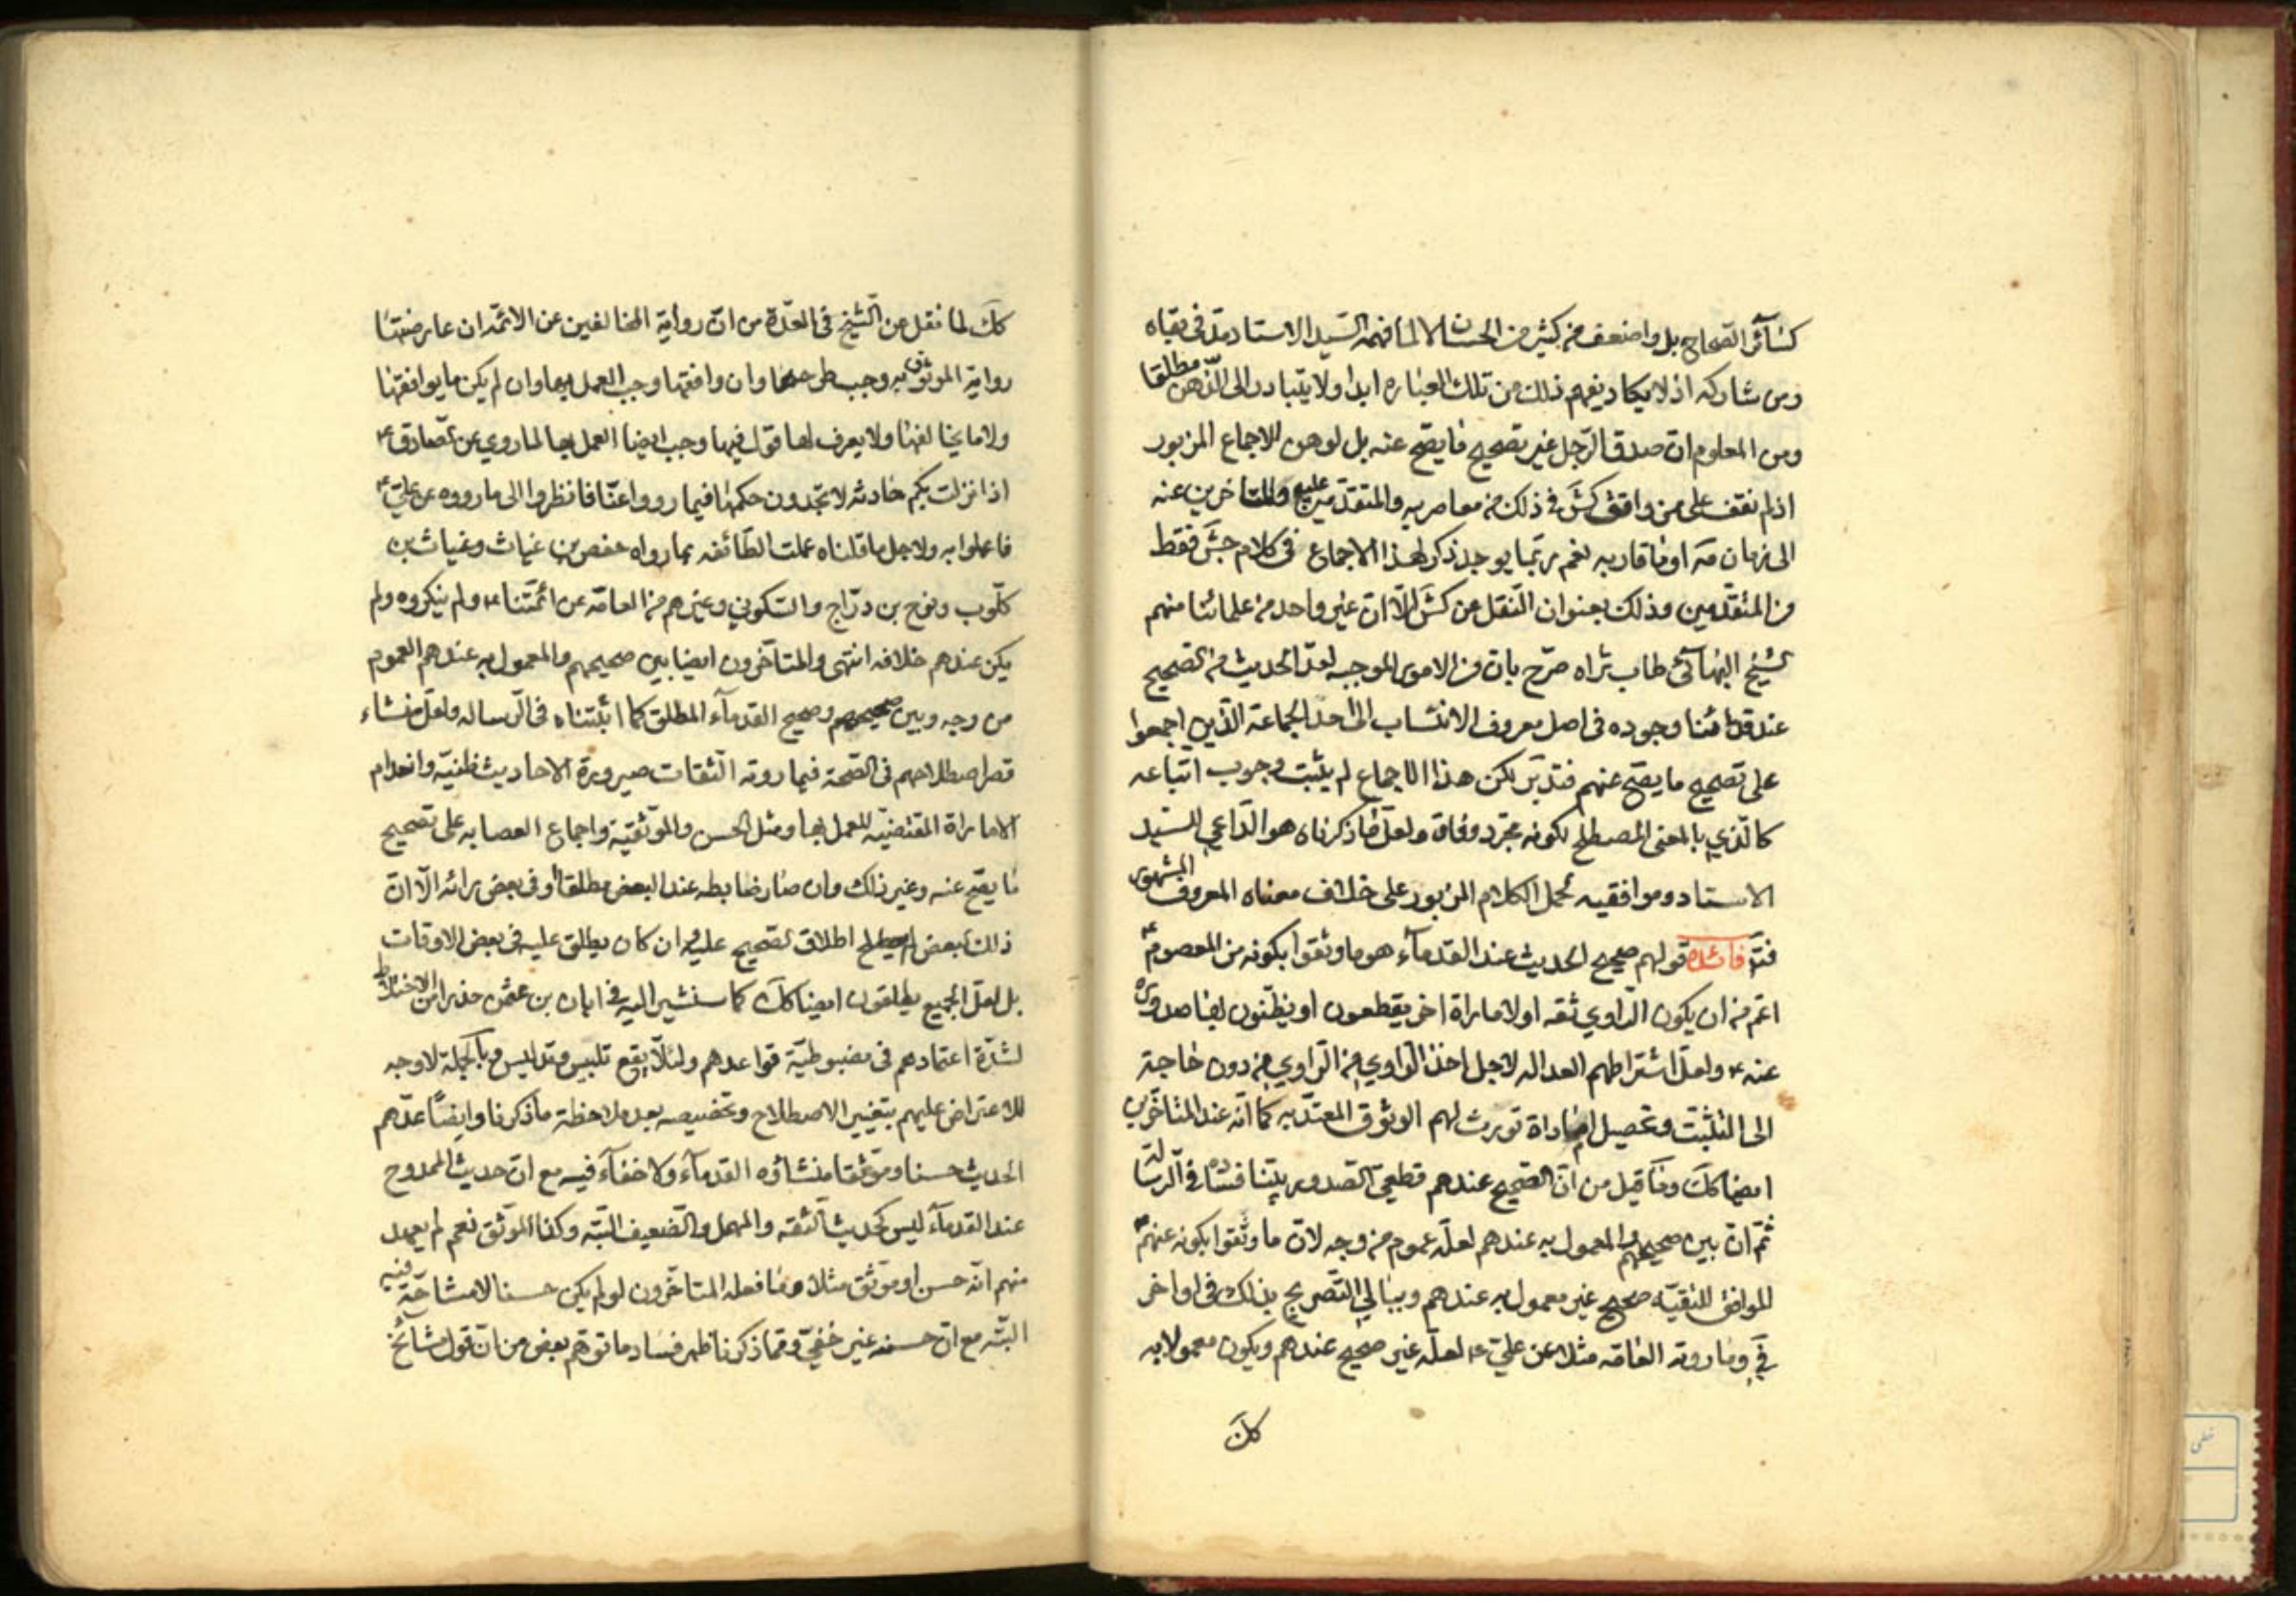 كسائر الصحاح بل واضعف من كثير من الحسان لا لما فهمه السيد الاستاد مد في بقاه
ومن شاركه اذ لا يكاد يفهم ذلك من تلك العبارة ابدا ولا يتبادر الى الذهن مطلقا
ومن المعلوم ان صدق الرجل غير تصحيح ما يصح عنه بل لوهن الاجماع المزبور
اذ لم نقف على من وافق كش في ذلك من معاصريه والمتقدمين عليه والمتاخرين عنه
الى زمان مه او ما قاربه نعم ربما يوجد ذكر لهذا الاجماع في كلام جش فقط
من المتقدمين وذلك بعنوان النقل عن كش الا ان غير واحد من علمائنا منهم
الشيخ البهائي طاب ثراه صرح بان من الامور الموجبة لعد الحديث من الصحيح
عند قدمائنا وجوده في اصل معروف الانتساب الى احد الجماعة الذين اجمعوا
على تصحيح ما يصح عنهم فتدبر لكن هذا الاجماع لم يثبت وجوب اتباعه
كالذي بالمعنى المصطلح لكونه مجرد وفاق ولعل ما ذكرناه هو الداعي للسيد
الاستاد وموافقيه لحمل الكلام المزبور على خلاف معناه المعروف المشهور
فائدة قولهم صحيح الحديث عند القدماء هو ما وثقوا بكونه من المعصوم ع
اعم من ان يكون الراوي ثقه او لاماراة اخر يقطعون او يظنون بها صدوره
عنه ع ولعل اشتراطهم العداله لاجل اخذ الراوي من الراوي من دون حاجة
الى التثبت وتحصيل اماراة تورث لهم الوثوق المعتد به كما انه عند المتاخرين
ايضا كك وما قيل من ان الصحيح عندهم قطعي الصدور بينا فساده في الرسالة
ثم ان بين صحيحهم والمعمول به عندهم لعله عموم من وجه لان ما وثقوا بكونه عنهم ع
الموافق للتقيه صحيح غير معمول به عندهم وببالي التصريح بذلك في اواخر
في وما روته العامه مثلا عن علي ع لعله غير صحيح عندهم ويكون معمولا به
كك
كك لما نقل عن الشيخ في العدة من ان رواية المخالفين عن الائمه ان عارضتها
رواية الموثوق به وجب طرحها وان وافقتها وجب العمل بها وان لم يكن ما يوافقها
ولا ما يخالفها ولا يعرف لها قول فيها وجب ايضا العمل بها لما روي عن الصادق ع
اذا نزلت بكم حادثه لا تجدون حكمها فيما رووا عنا فانظروا الى ما رووه عن علي ع
فاعملوا به ولاجل ما قلناه عملت الطائفه بما رواه حفص بن غياث وغياث بن
كلوب ونوح بن دراج والسكوني وغيرهم من العامه عن ائمتنا ع ولم ينكروه ولم
يكن عندهم خلافه انتهى والمتاخرون ايضا بين صحيحهم والمعمول به عندهم العموم
من وجه وبين صحيحهم وصحيح القدماء المطلق كما اثبتناه في الرساله ولعل منشاء
قصر اصطلاحهم في الصحة فيما روته الثقات صيرورة الاحاديث ظنيه وانعدام
الاماراة المقتضيه للعمل بها ومثل الحسن والموثقية واجماع العصابه على تصحيح
ما يصح عنه وغير ذلك وان صار ضابطه عند البعض مطلقا او في بعض رائه الا ان
ذلك البعض لم يصطلح اطلاق الصحيح عليه وان كان يطلق عليه في بعض الاوقات
بل لعل الجميع يطلقون ايضا كك كما سنشير اليه في ابان بن عثمن حذرا من الاختلاط
لشدة اعتمادهم في مضبوطية قواعدهم ولئلا يقع تلبيس وتدليس وبالجملة لا وجه
للاعتراض عليهم بتغيير الاصطلاح وتخصيصه بعد ملاحظة ما ذكرنا وايضا عدهم
الحديث حسنا وموثقا منشاؤه القدماء ولا خفاء فيه مع ان حديث الممدوح
عند القدماء ليس كحديث الثقه والمهمل والضعيف البته وكذا الموثق نعم لم يعهد
منهم انه حسن او موثق مثلا وما فعله المتاخرون لو لم يكن حسنا لا مشاحة فيه
البته مع ان حسنه غير خفي ومما ذكرنا ظهر فساد ما توهم بعض من ان قول مشائخ